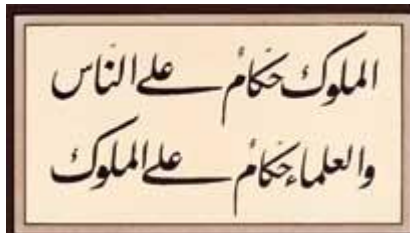 الملوك حكامٌ على الناس
والعلماء حكامٌ على الملوك